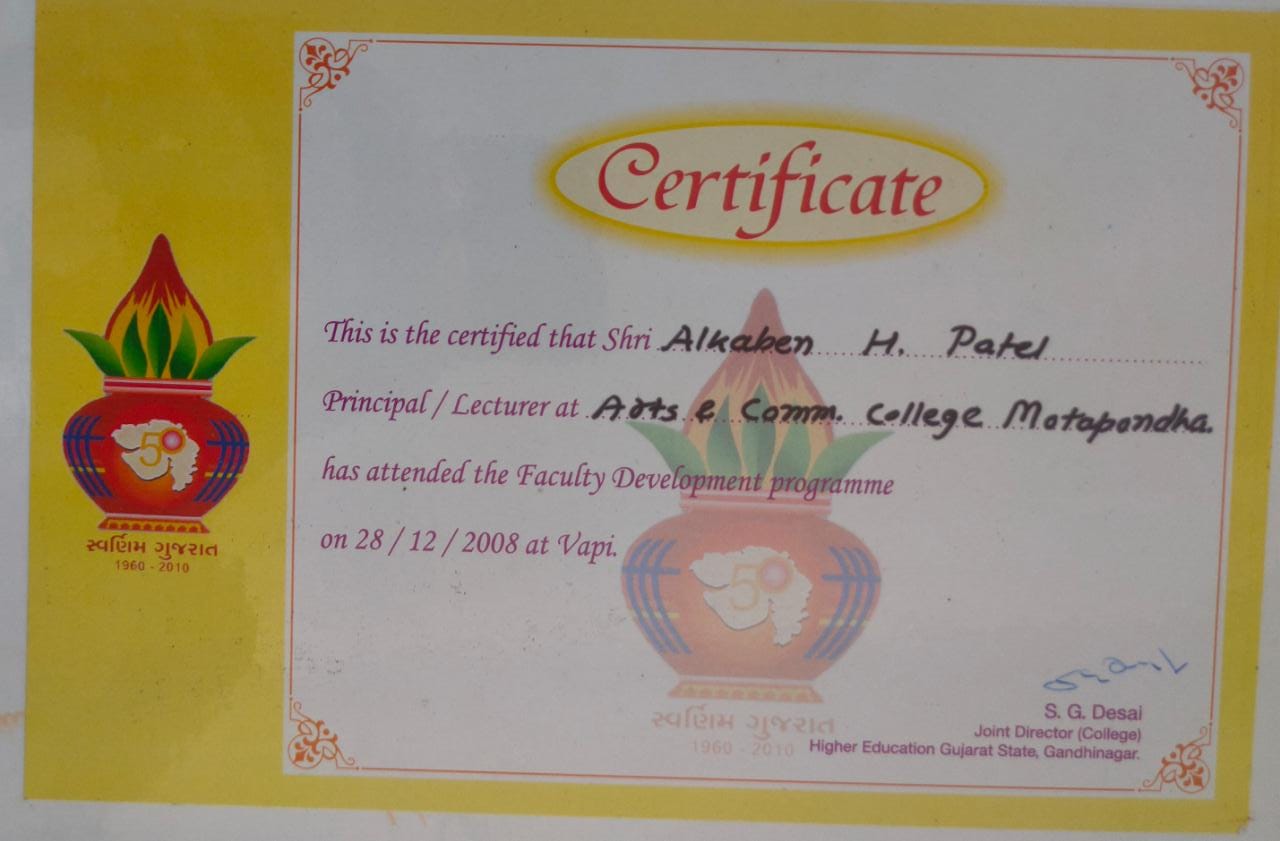 Certificate
This is the certified that Shri Alkaben H. Patel
Principal / Lecturer at Arts & Comm. College Motapondha.
has attended the Faculty Development programme
on 28 / 12 / 2008 at Vapi.
50
સ્વર્ણિમ ગુજરાત
1960 - 2010
50
સ્વર્ણિમ ગુજરાત
1960 - 2010
S. G. Desai
Joint Director (College)
Higher Education Gujarat State, Gandhinagar.